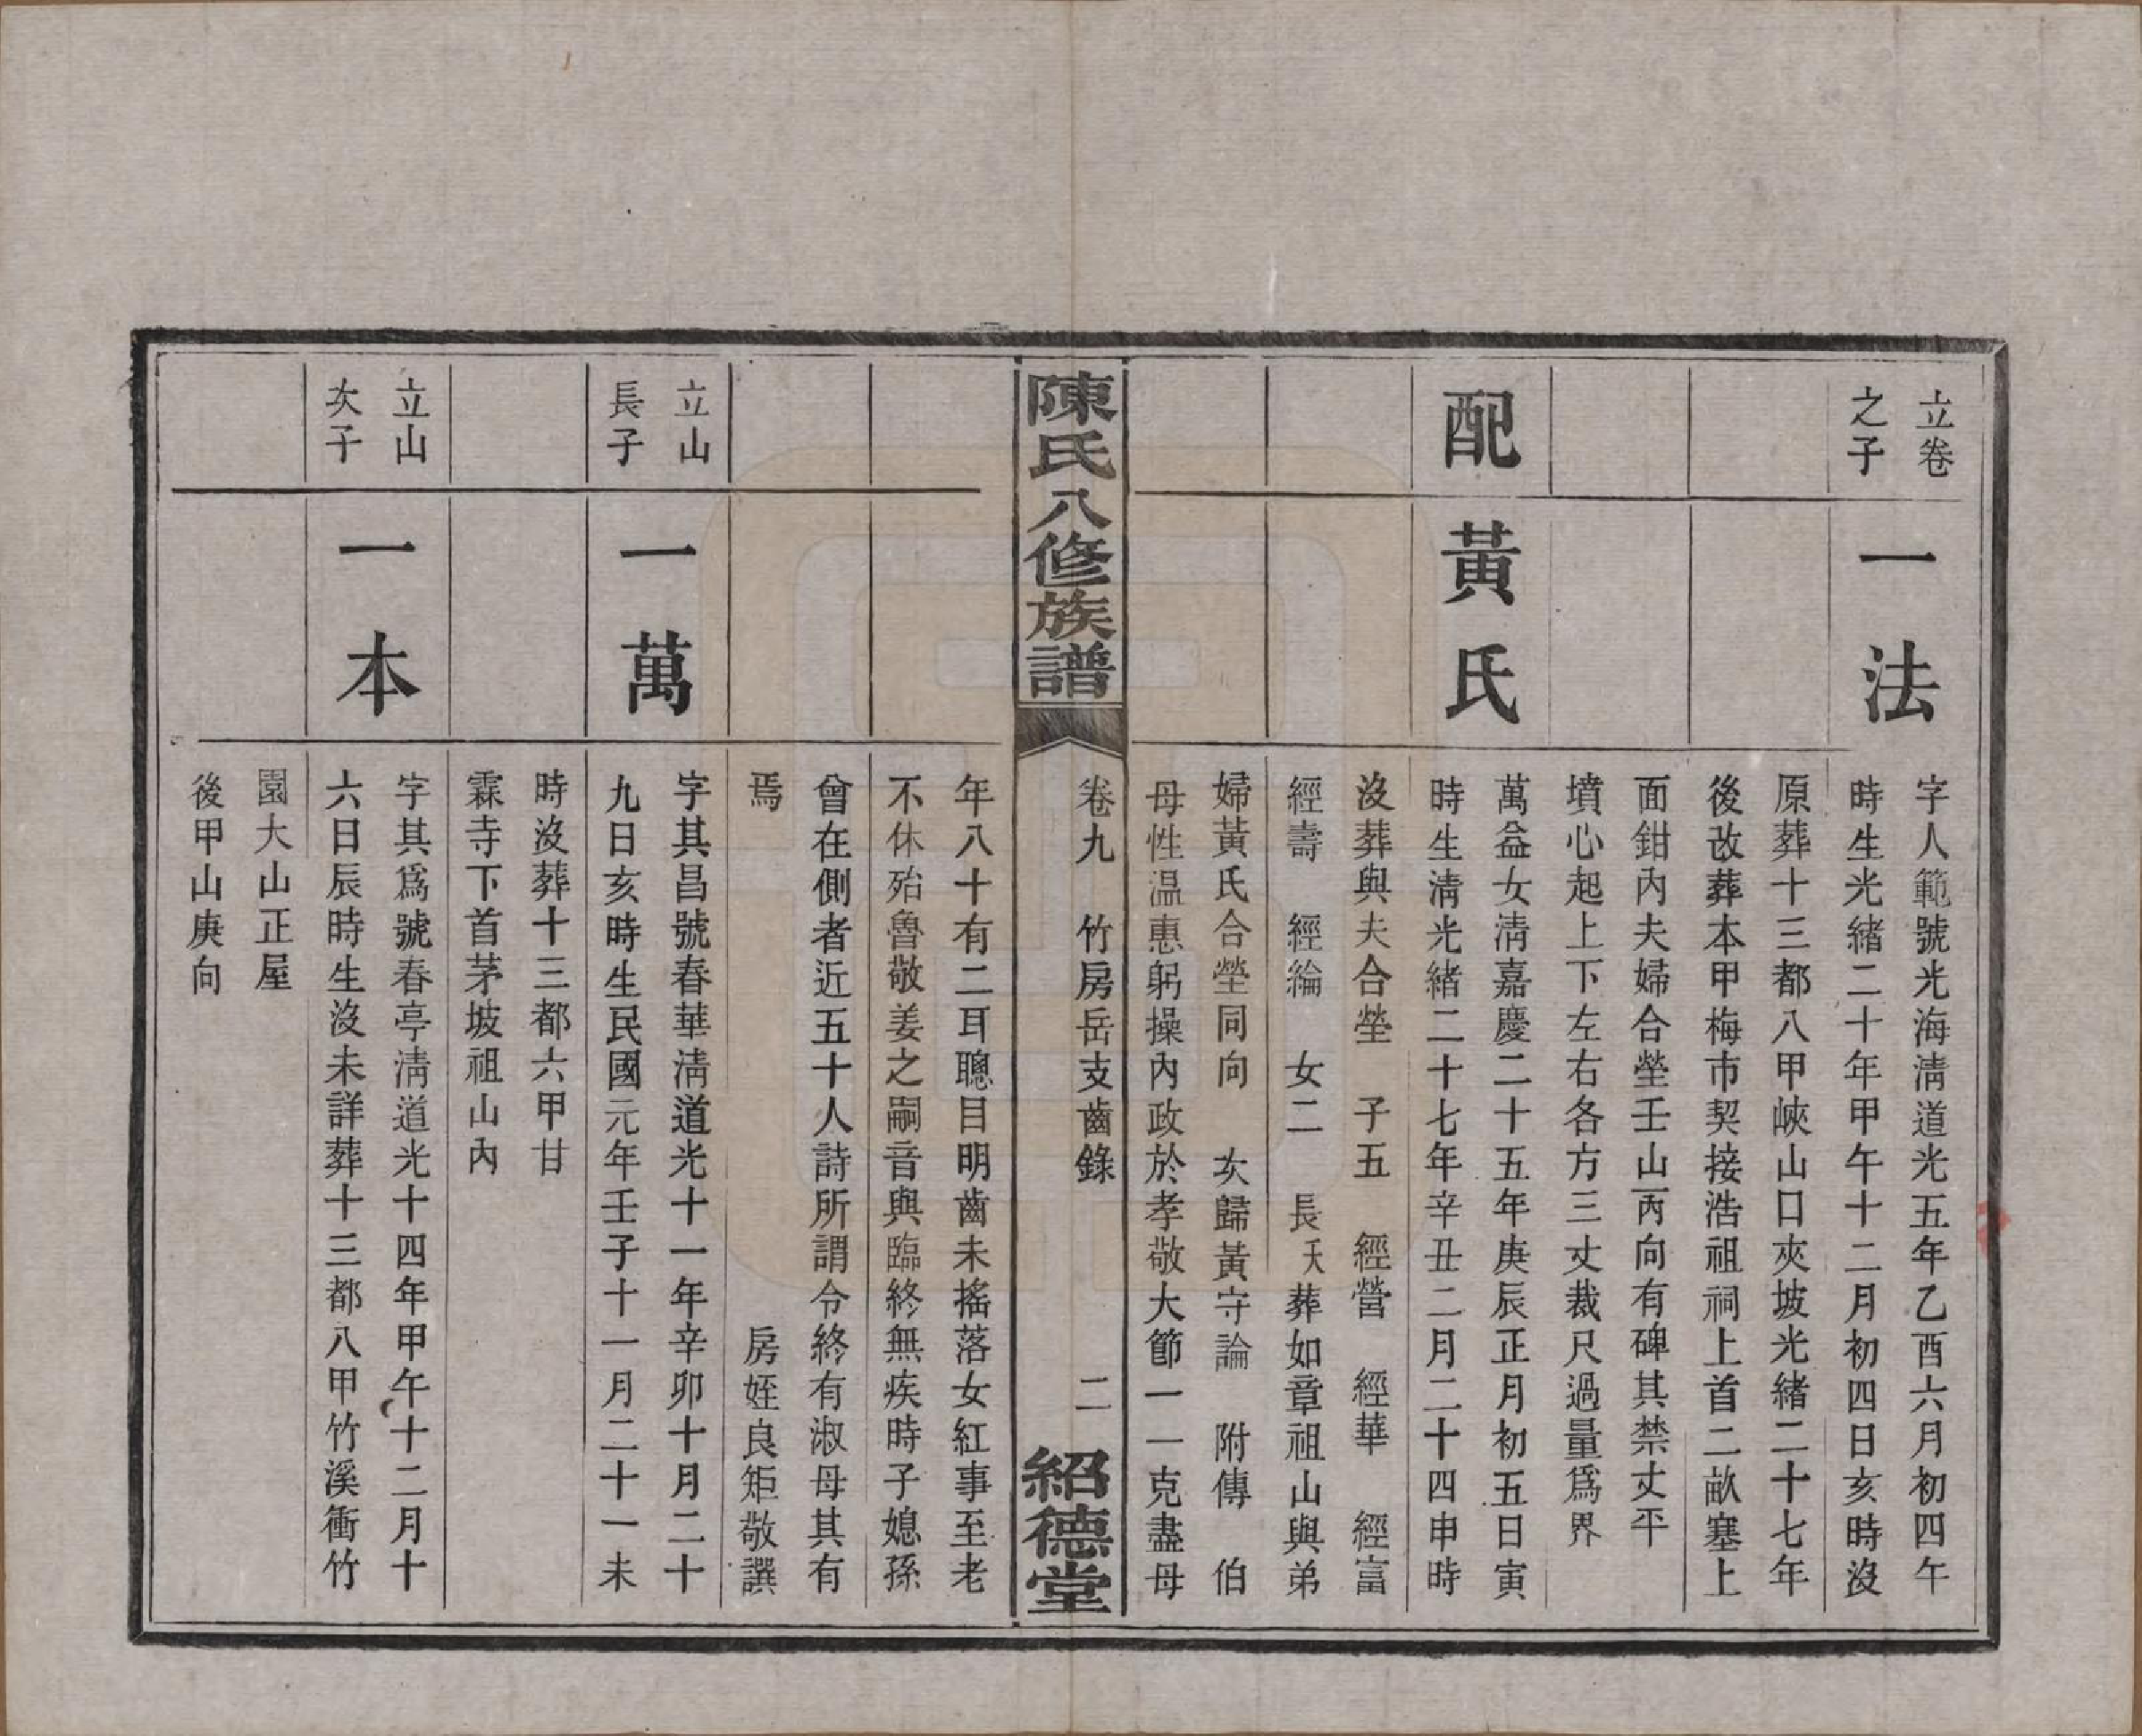 立卷
之子
一法
字人範號光海淸道光五年乙酉六月初四午
時生光緒二十年甲午十二月初四日亥時沒
原葬十三都八甲峽山口夾坡光緒二十七年
後改葬本甲梅市契接浩祖祠上首二畝塞上
面鉗內夫婦合塋壬山丙向有碑其禁丈平
墳心起上下左右各方三丈裁尺過量爲界
配
黃氏
萬益女淸嘉慶二十五年庚辰正月初五日寅
時生淸光緒二十七年辛丑二月二十四申時
沒葬與夫合塋　子五　經營　經華　經富
經壽　經綸　女二　長殀葬如章祖山與弟
婦黃氏合塋同向　次歸黃守論　附傳　伯
母性温惠躬操內政於孝敬大節一一克盡母
陳氏八修族譜
卷九　竹房岳支齒錄
二
紹德堂
年八十有二耳聰目明齒未搖落女紅事至老
不休殆魯敬姜之嗣音與臨終無疾時子媳孫
曾在側者近五十人詩所謂令終有淑母其有
焉　房姪良矩敬譔
立山
長子
一萬
字其昌號春華淸道光十一年辛卯十月二十
九日亥時生民國元年壬子十一月二十一未
時沒葬十三都六甲甘
霖寺下首茅坡祖山內
立山
次子
一本
字其爲號春亭淸道光十四年甲午十二月十
六日辰時生沒未詳葬十三都八甲竹溪衝竹
園大山正屋
後甲山庚向